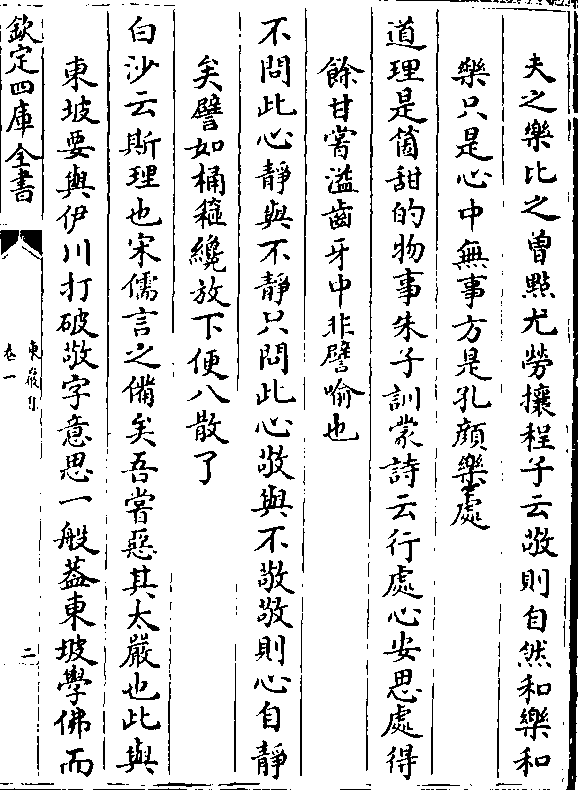 夫之樂比之曾㸃尤勞攘程子云敬則自然和樂和
樂只是心中無事方是孔顔樂處
道理是箇甜的物事朱子訓蒙詩云行處心安思處得
餘甘嘗溢齒牙中非譬喻也
不問此心靜與不靜只問此心敬與不敬敬則心自靜
矣譬如桶箍纔放下便八散了
白沙云斯理也宋儒言之備矣吾嘗惡其太嚴也此與
東坡要與伊川打破敬字意思一般葢東坡學佛而
欽定四庫全書
卷一
二